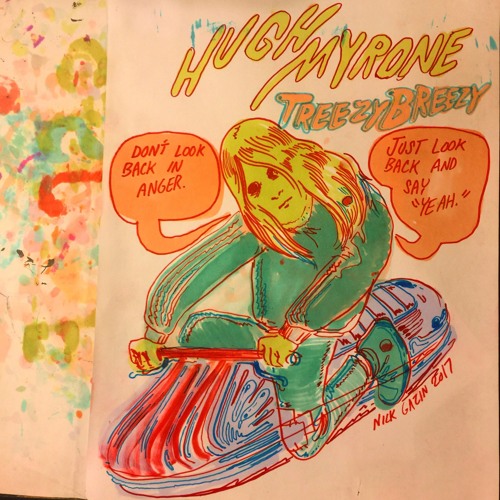 HUGH
MYRONE
TREEZYBREEZY
DON'T LOOK
BACK IN
ANGER.
JUST LOOK
BACK AND
SAY
"YEAH."
NICK GAZIN 2017